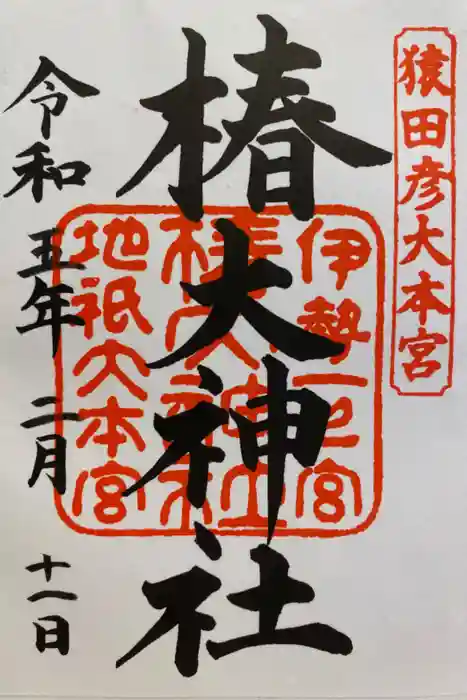 猿田彦大本宮
伊勢一之宮
椿大神社
地祇大本宮
椿大神社
令和五年二月十一日